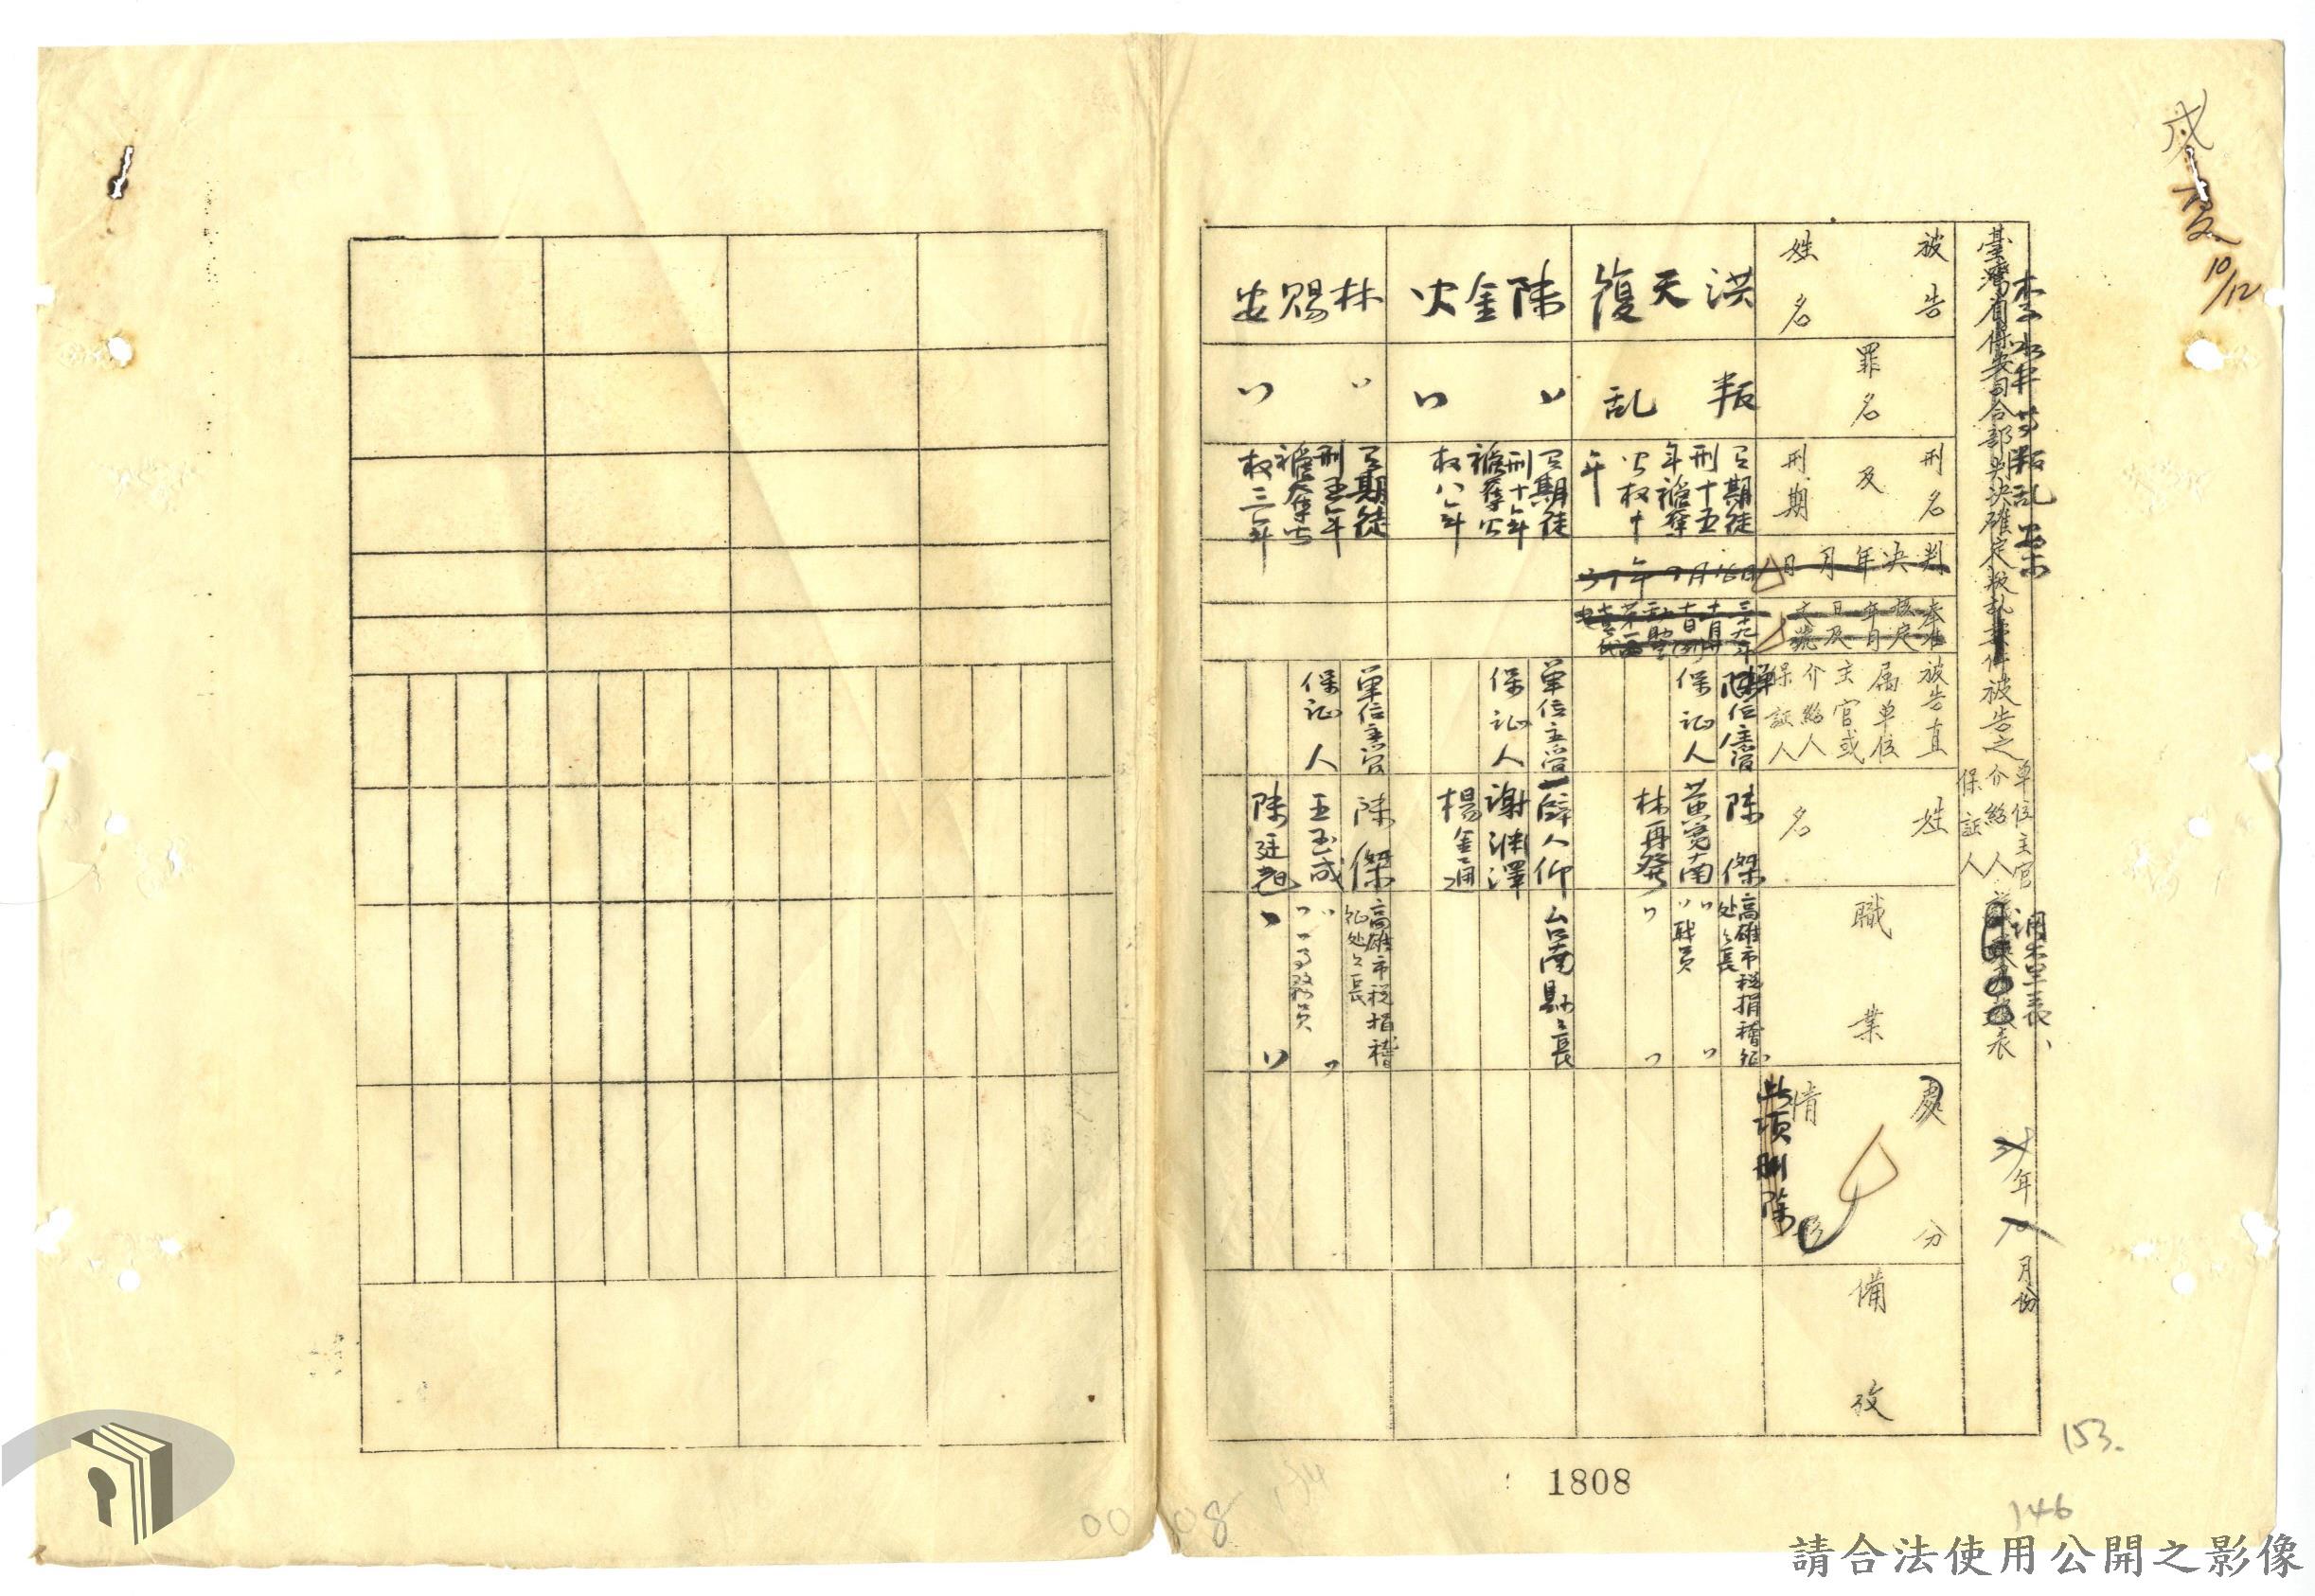 李水井等叛乱案
臺灣省保安司令部判決確定叛乱案件被告之
單位主官
介紹人
保証人
調查表
年
月份
10/12
被告
姓名
罪名
刑名
及
刑期
判決年月日
奉准
核定
年月
日及
文號
被告直
屬單位
主官或
介紹人
保証人
姓名
職業
處分
情形
此項刪除
備攷
洪天復
叛乱
有期徒
刑十五
年褫奪
公权十
年
39年9月16日
單位主官
陳傑
高雄市稅捐稽征
处々長
保证人
黃寬南
〃〃職員〃
林再發
〃〃
陳金火
〃〃
有期徒
刑十年
褫奪公
权八年
單位主官
薛人仰
台南縣々長
保证人
謝渊澤
楊金通
林賜安
〃〃
有期徒
刑五年
褫奪公
权三年
單位主官
陳傑
高雄市稅捐稽
征处々長
保证人
王玉成
陳廷
〃〃
1808
153.
146
00108
請合法使用公開之影像